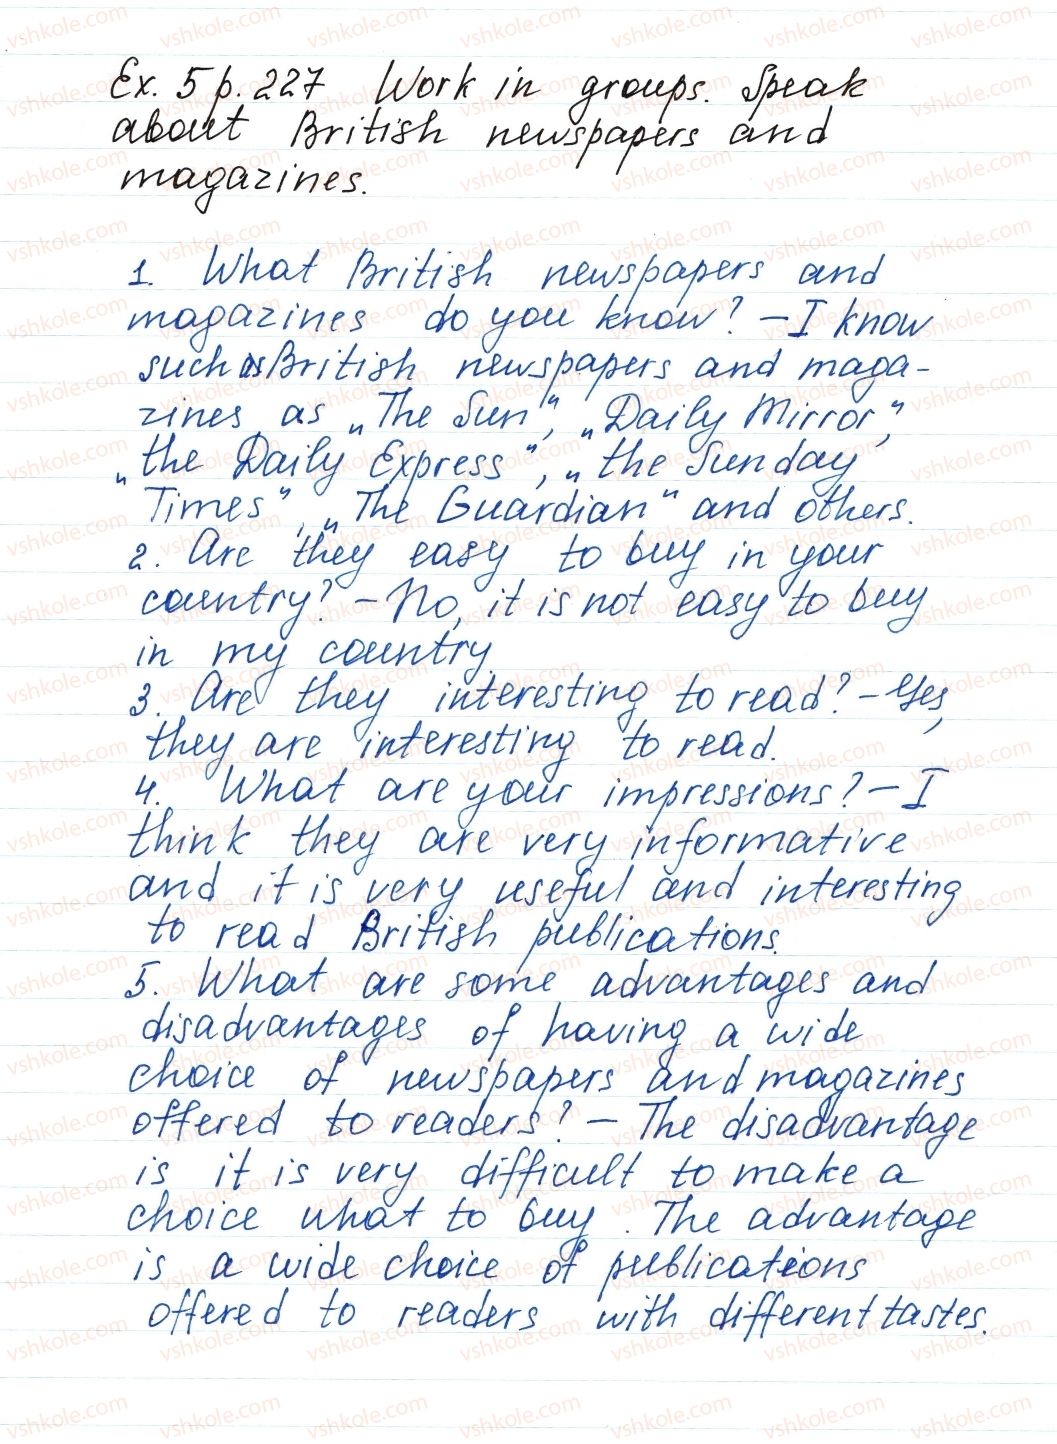 Ex. 5 p. 227 Work in groups. Speak
about British newspapers and
magazines.
1. What British newspapers and
magazines do you know? – I know
such as British newspapers and maga-
zines as „The Sun", „Daily Mirror",
„the Daily Express", „the Sunday
Times", „The Guardian" and others.
2. Are they easy to buy in your
country? – No, it is not easy to buy
in my country.
3. Are they interesting to read? – Yes,
they are interesting to read.
4. What are your impressions? – I
think they are very informative
and it is very useful and interesting
to read British publications.
5. What are some advantages and
disadvantages of having a wide
choice of newspapers and magazines
offered to readers? – The disadvantage
is it is very difficult to make a
choice what to buy. The advantage
is a wide choice of publications
offered to readers with different tastes.
vshkole.com